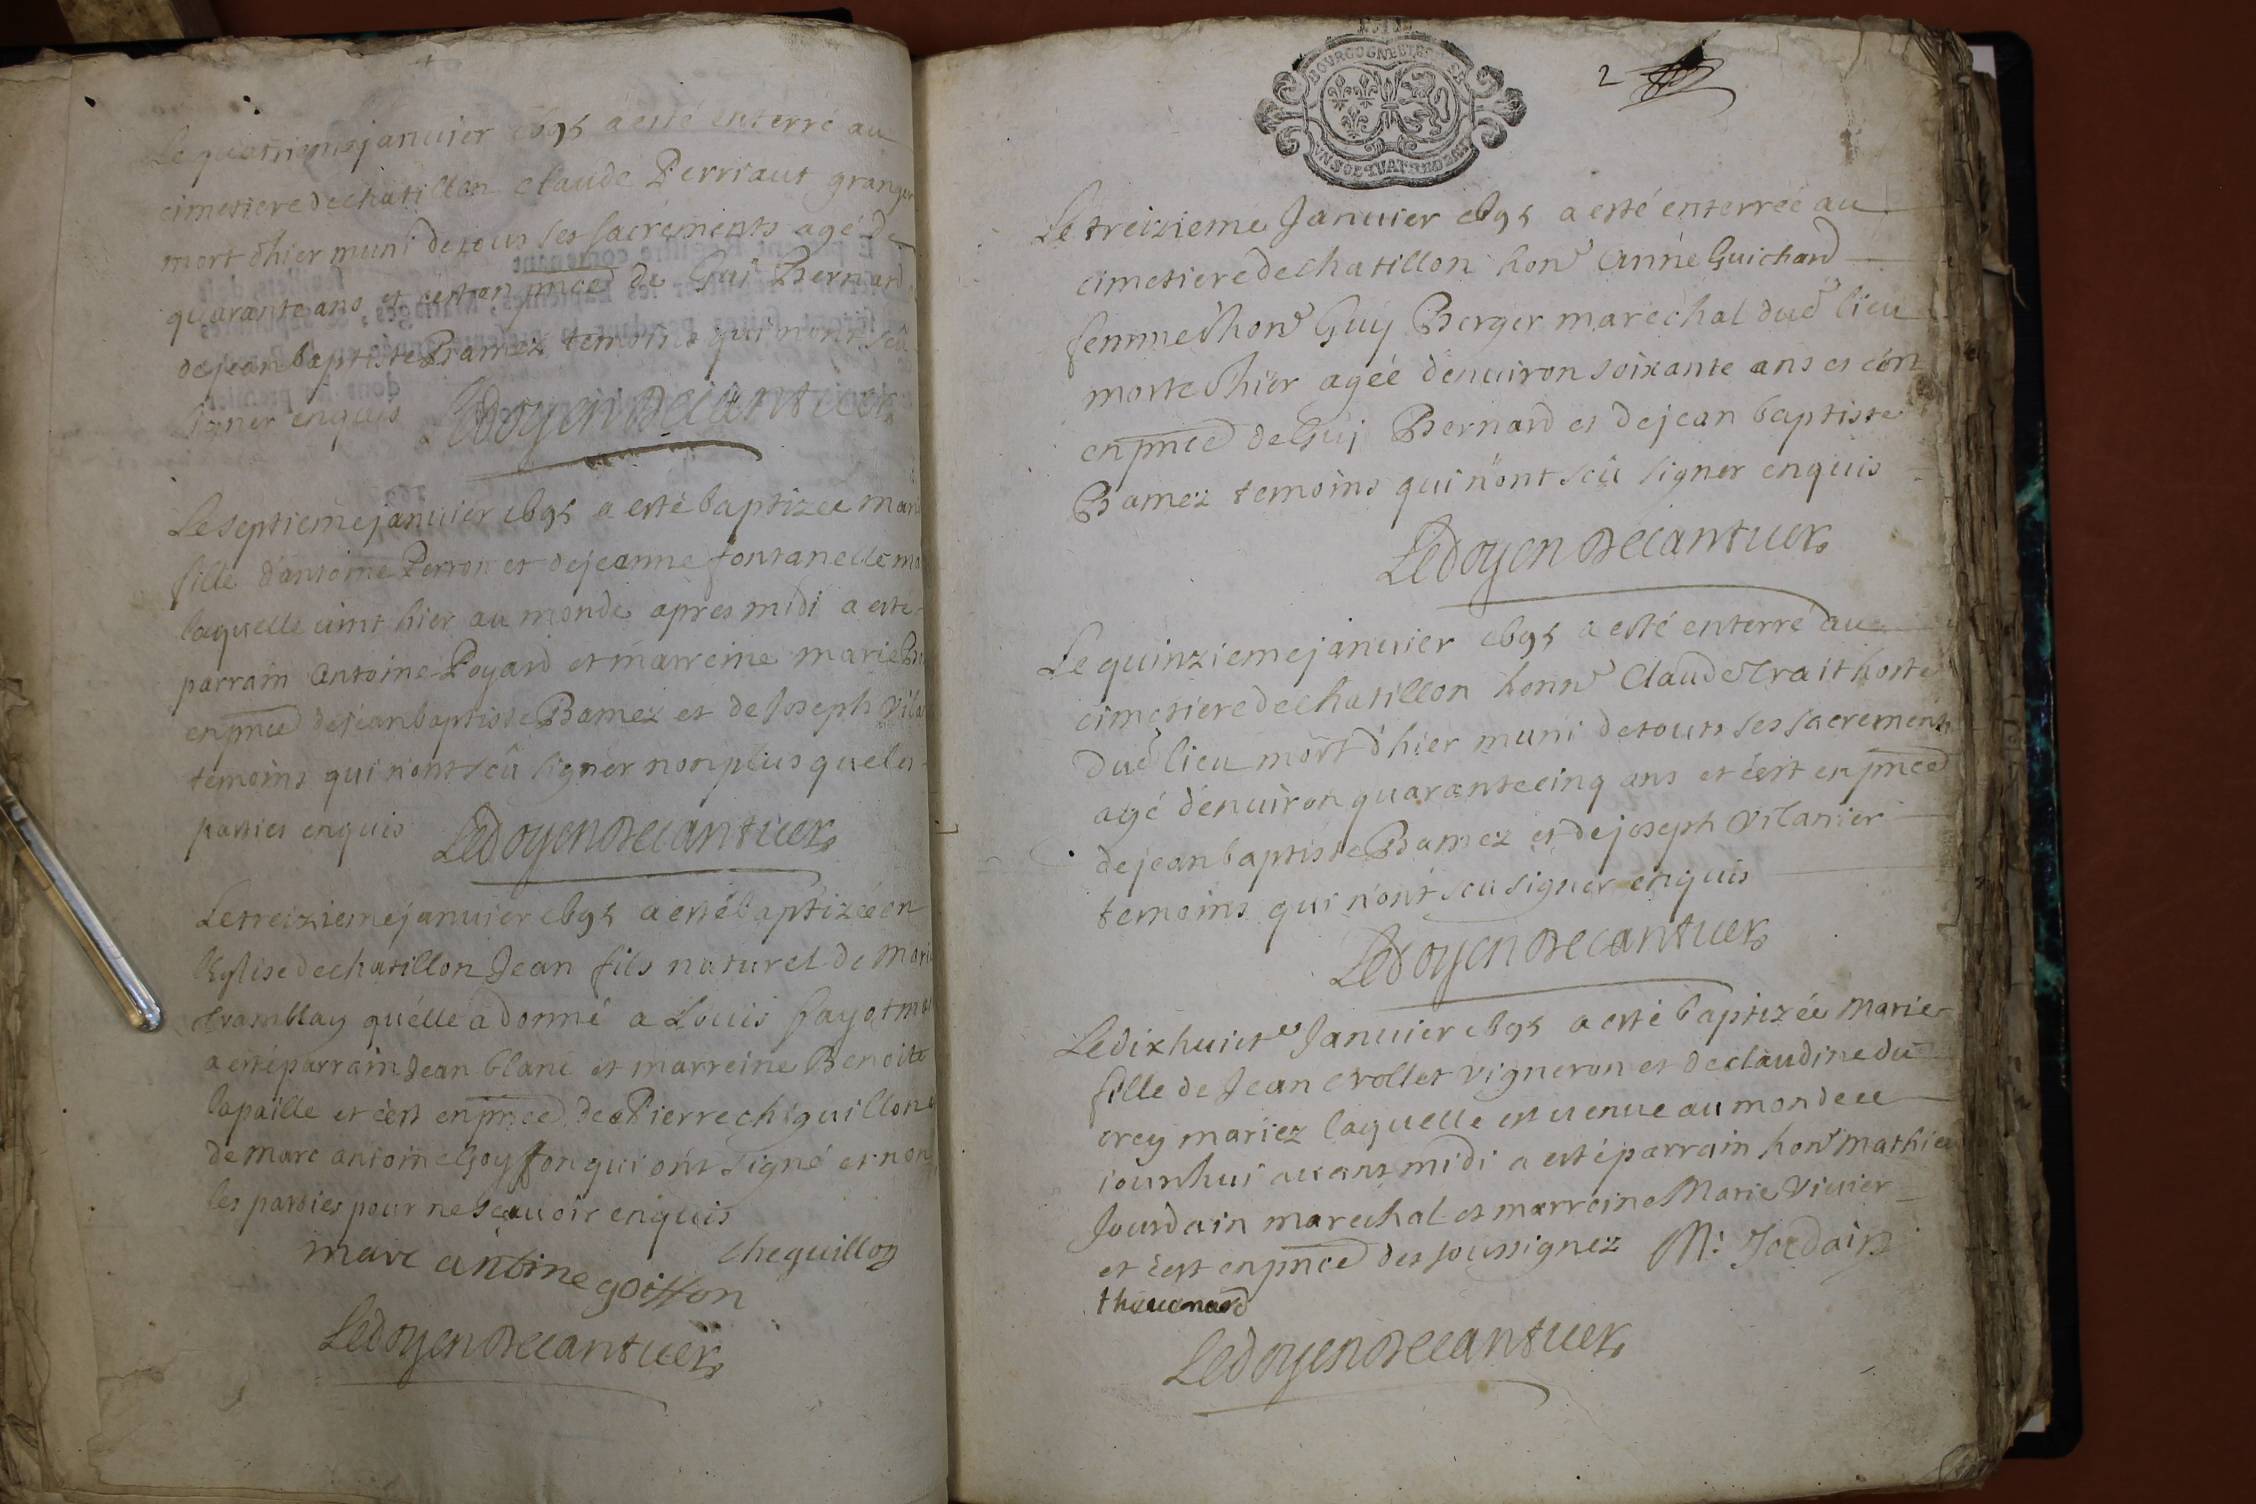 Le quatriemejanvier 1695 a esté enterré au
cimetiere de chatillon claude Perriaut granger
mort d'hier muni de tous ses sacrements agé de
quarante ans et c'est en pnce de Gui Bernard
de jean baptiste Bamez temoins qui n'ont sçû
signer enquis Ledoyen Decantuer
Le septieme janvier 1695 a esté baptizee mari
fille d'antoine Perron et de jeanne fontanelle ma
laquelle vint hier au monde apres midi a esté
parrain antoine Poyard et marreine marie
en pnce de jean baptiste Bamez et de Joseph Vila
temoins qui n'ont sçû signer non plus que les
parties enquis Ledoyen Decantuer
Le treizieme janvier 1695 a esté baptizée en
l'Eglise de chatillon Jean fils naturel de Mari
Tramblay qu'elle a donné a Louis fayot
a esté parrain Jean blanc et marreine Benoite
lapaille et c'est en pnce de Pierre chiguillon
de marc antoine Goyffon qui ont signé et non
les parties pour ne sçavoir enquis
marc antoine goiffon cheguillon
Ledoyen Decantuer
BOURGOGNE ET
UN SOL QUATRE DEN
2
Le treizieme Janvier 1695 a esté enterreé au
cimetiere de chatillon hone Anne Guichard
femme d'hone Guy Berger marechal dud lieu
morte d'hier ageé d'environ soixante ans et c'est
en pnce de Guy Bernard et de jean baptiste
Bamez temoins qui n'ont sçû signer enquis
Ledoyen Decantuer
Le quinzieme janvier 1695 a esté enterré au
cimetiere de chatillon honne Claude Trait hoste
dud lieu mort d'hier muni de touts ses sacrements
agé d'environ quarante cinq ans et c'est en pnce
de jean baptiste Bamez et de joseph Vilanier
temoins qui n'ont sceu signer enquis
Ledoyen Decantuer
Le dix huicte Janvier 1695 a esté baptizée Marie
fille de Jean Crollet vigneron et de claudine du
crey mariez laquelle est venue au monde ce
iourdhui avant midi a esté parrain hone mathieu
Jourdain marechal et marreine Marie Vivier
et c'est en pnce des soussignez M: Jordain
thevenard
Ledoyen Decantuer